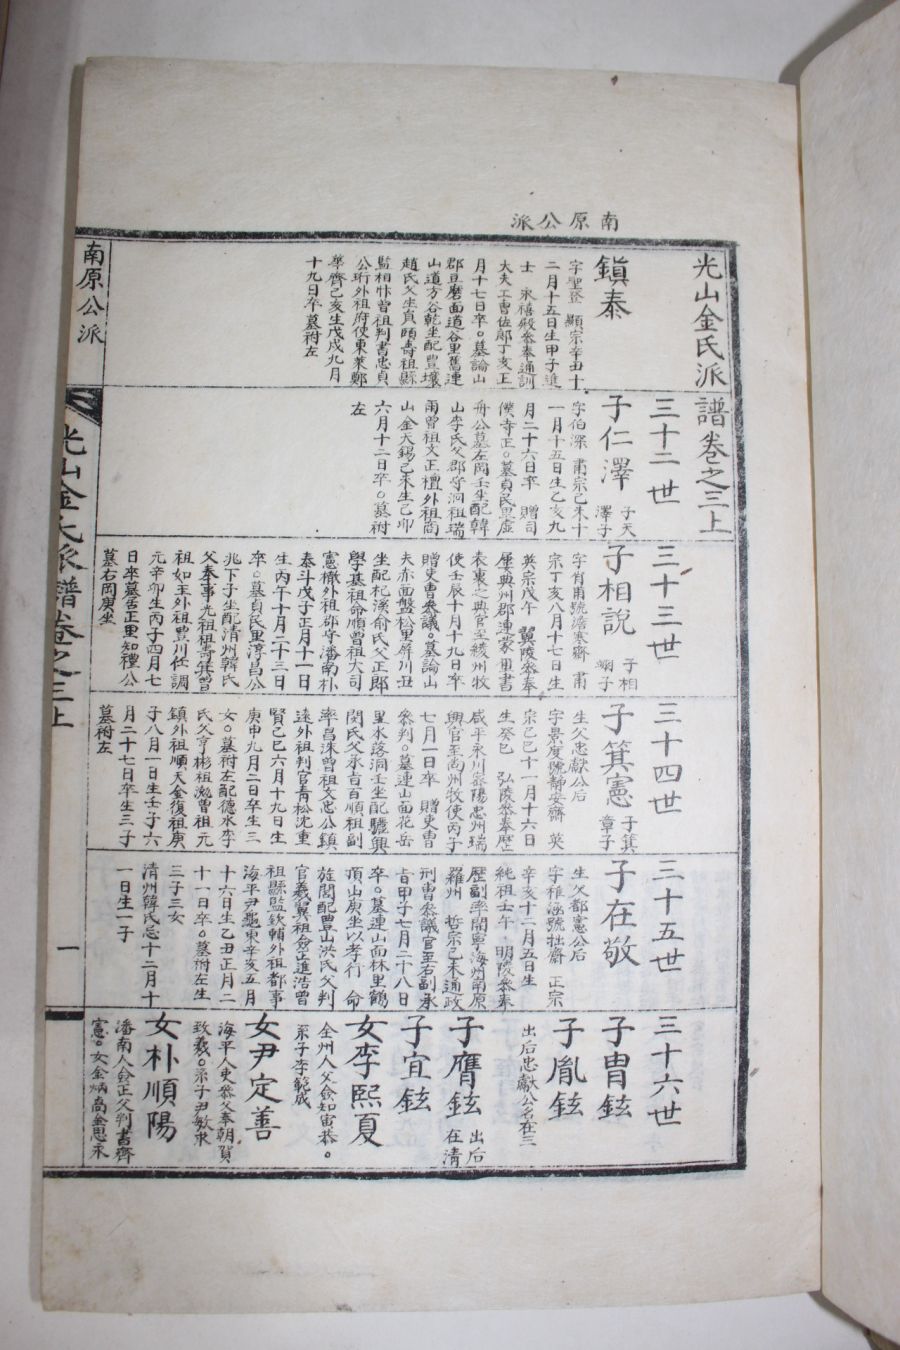 南原公派
光山金氏派譜卷之三上
鎭泰
字聖登 顯宗辛丑十
二月十五日生甲子進
士 永禧殿參奉通訓
大夫工曹佐郞丁亥正
月十七日卒○墓論山
郡豆磨面道谷里舊連
山道方谷乾坐配豊壤
趙氏父生員頤壽祖縣
監相忭曾祖判書忠貞
公珩外祖府使東萊鄭
華齊己亥生戊戌九月
十九日卒墓祔左
三十二世
子仁澤 子天澤子
字伯深 肅宗己未十
一月十五日生乙亥九
月二十六日卒 贈司
僕寺正○墓貞民里虛
舟公墓左岡壬坐配韓
山李氏父郡守泂祖瑞
雨曾祖文正穡外祖商
山金天錫己未生己卯
六月十二日卒○墓祔
左
三十三世
子相說 子相
字肯甫號澹寒齋 肅
宗丁亥八月十七日生
英宗戊午 翼陵參奉
使壬辰十月十九日卒
贈吏曹參議○墓論山
夫赤面盤松里屛川丑
坐配杞溪兪氏父正郞
學基祖命順曾祖大司
憲㯙外祖郡守潘南朴
泰斗戊子正月十一日
生丙午十月二十三日
卒○墓貞民里淳昌公
兆下子坐配淸州韓氏
父奉事光祖祖壽箕曾
祖如玉外祖豊川任調
元辛卯生丙子四月七
日卒墓居正里知禮公
墓右岡庚坐
三十四世
子箕憲 子箕章子
生父忠獻公后
字景度號靜安齋 英
宗己巳十一月十六日
生癸巳 弘陵參奉歷
咸平永川密陽忠州瑞
興官至尙州牧使丙子
七月一日卒 贈吏曹
參判○墓連山面花岳
里水落洞壬坐配驪興
閔氏父承百百順祖副
率昌洙曾祖文忠公鎭
遠外祖判官靑松沈重
賢己巳六月十九日生
庚申九月二日卒生三
女○墓祔左配德水李
氏父亨彬祖 曾祖元
鎭外祖順天金復祖庚
子八月一日生壬子六
月二十七日卒生三子
墓祔左
三十五世
子在敬
生父都憲公后
字稚涵號拙齋 正宗
辛亥十二月五日生
純祖壬午 明陵參奉
歷副率開寧海州南原
羅州 哲宗己未通政
刑曹參議官至右副承
旨甲子七月二十八日
卒○墓連山面林里鶴
頂山庚坐以孝行 命
旌閭配豊山洪氏父判
官羲翼祖僉正進浩曾
祖縣監欽輔外祖都事
海平尹 東辛亥五月
十六日生乙丑正月二
十一日卒○墓祔左生
三子三女
淸州韓氏忌十二月十
一日生一子
三十六世
子胄鉉
子胤鉉
出后忠獻公名在三
子膺鉉 出后在淸
子宜鉉
女李熙夏
全州人父僉知寅恭○
系子李範成
女尹定善
海平人吏參父奉朝賀
致羲○系子尹敏求
女朴順陽
潘南人僉正父判書齊
憲○女金炳喬金思永
南原公派
光山金氏派譜卷之三上
一